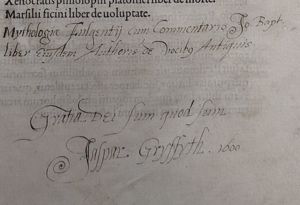 Xenocratis philosophi platonici liber de morte.
Marsilii ficini liber de voluptate.
Mythologia Fulgentij cum Commentario Jo Bapt.
liber eiusdem Authoris de Vocibus Antiquis
Gratia Dei sum quod sum
Jaspar Gryffyth. 1600